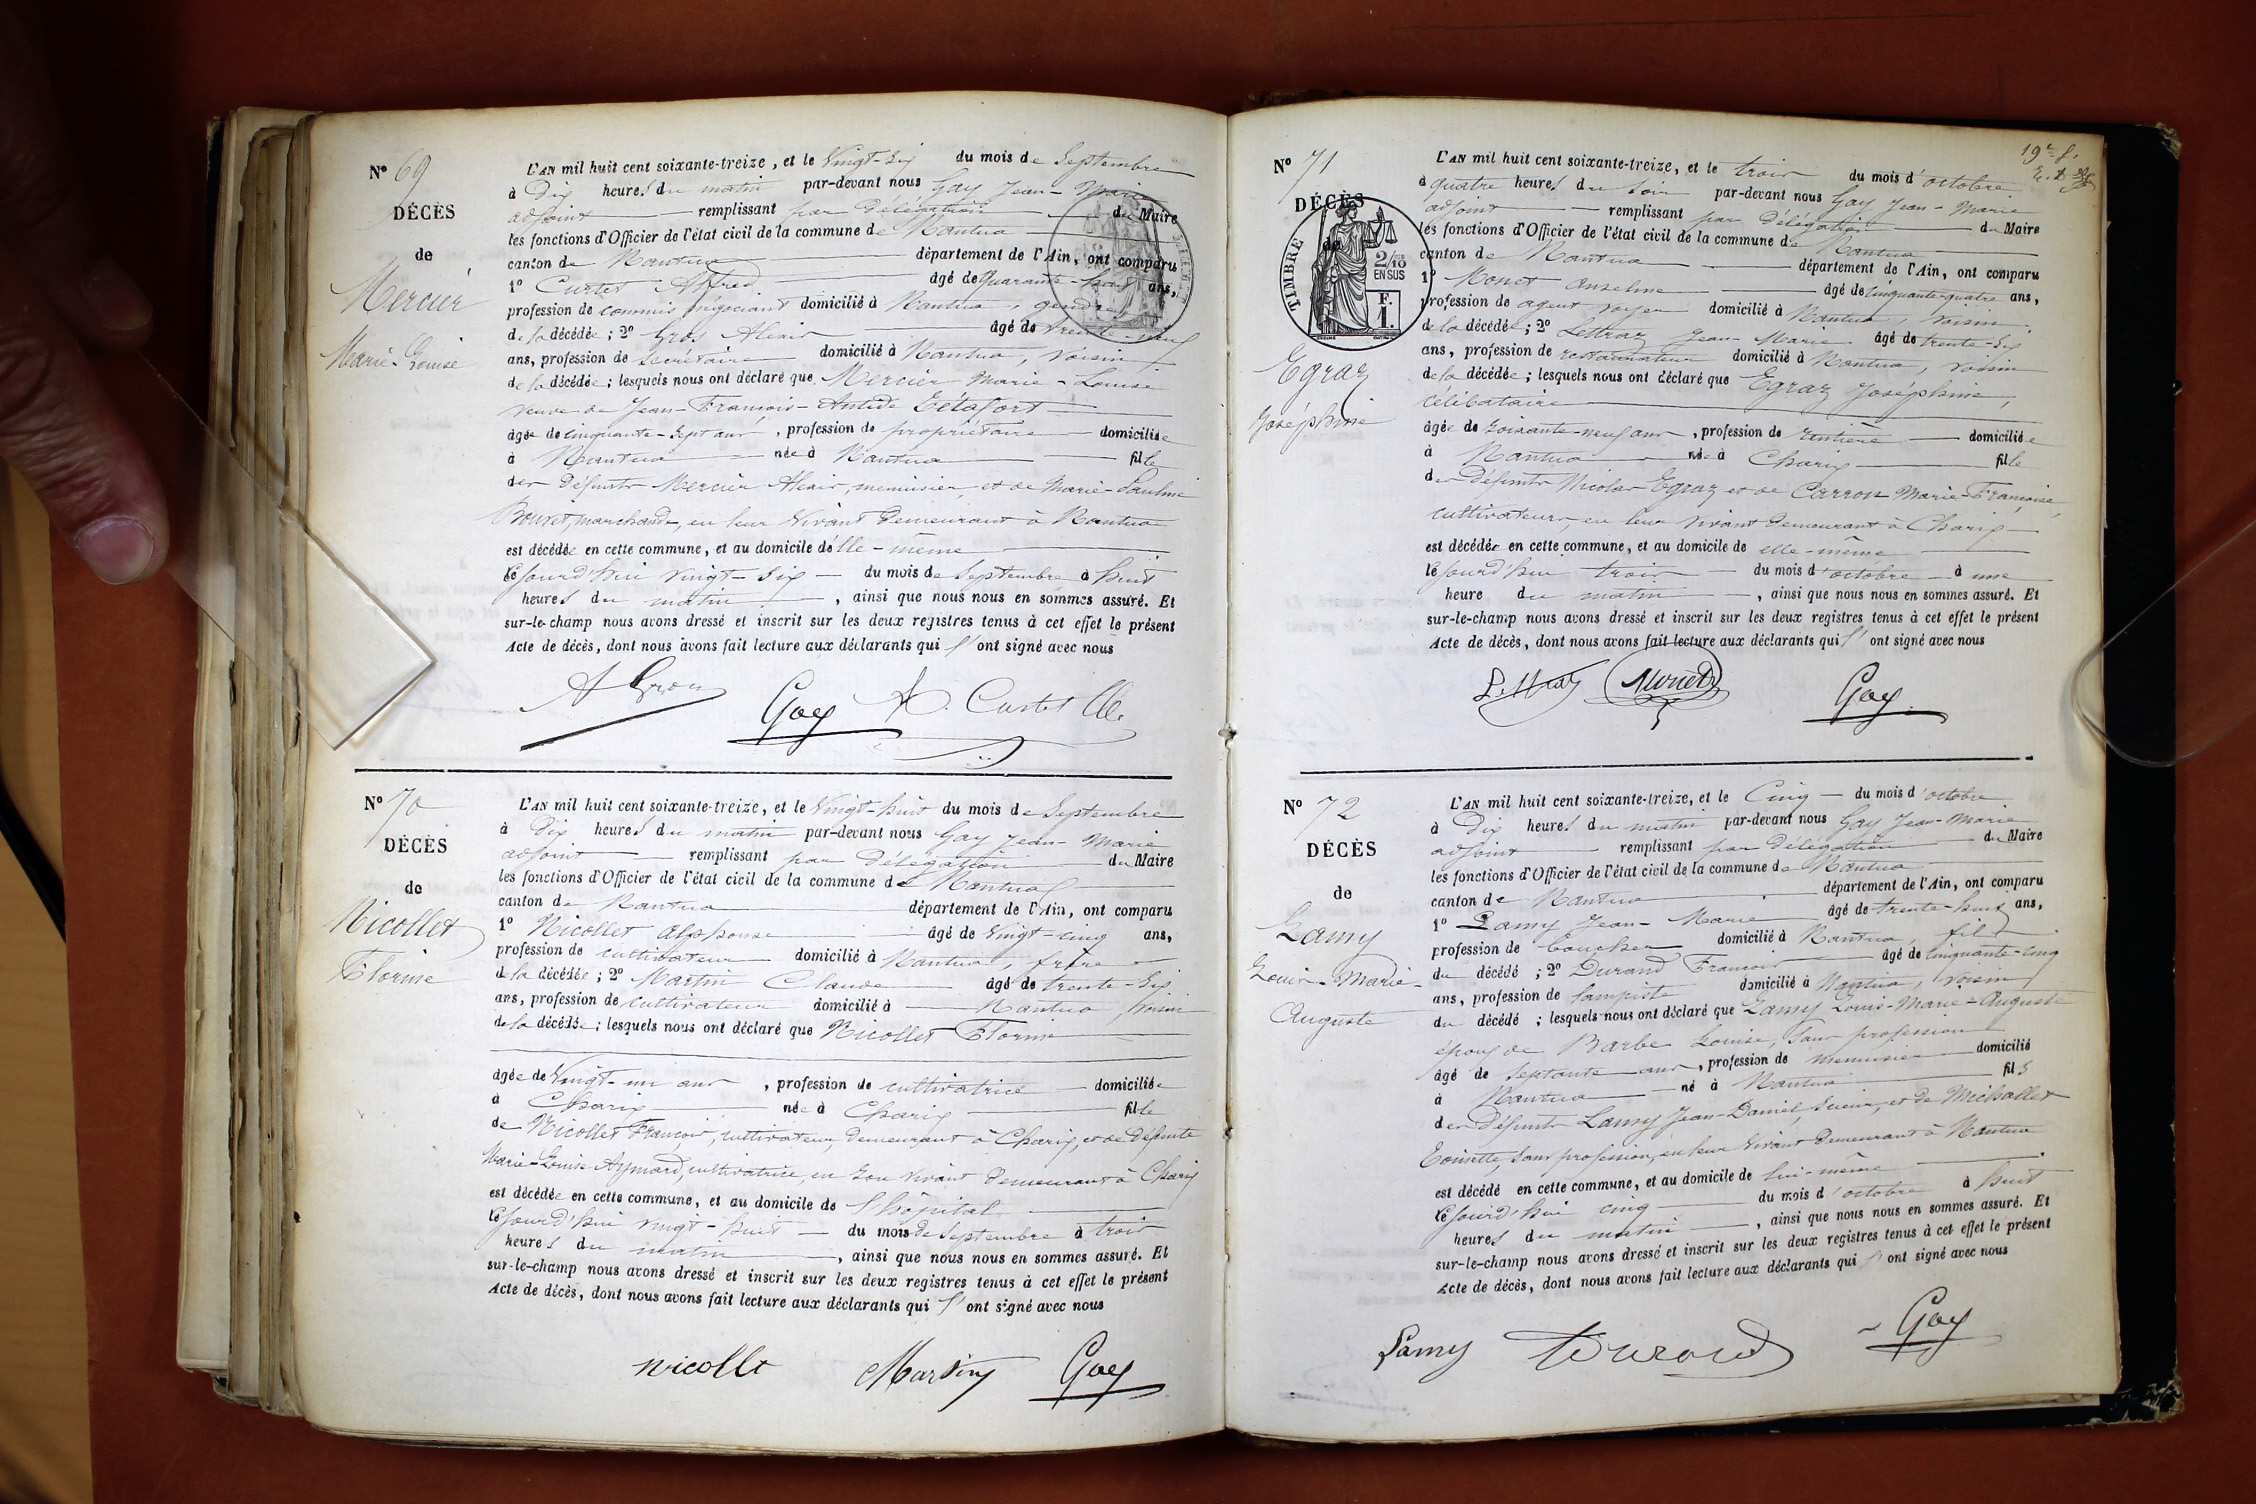 N° 69
DÉCÈS
de
Mercier
Marie-Louise
L'AN mil huit cent soixante-treize, et le Vingt-six du mois de Septembre
à Dix heures du matin par-devant nous Gay Jean-Marie
adjoint remplissant par Délégation du Maire
les fonctions d'Officier de l'état civil de la commune de Nantua
canton de Nantua département de l'Ain, ont comparu
1° Curtet Alfred âgé de Quarante- ans,
profession de commis négociant domicilié à Nantua, gendre
de la décédée ; 2° Gros Alexis âgé de trente-neuf
ans, profession de Secrétaire domicilié à Nantua, Voisin
de la décédée ; lesquels nous ont déclaré que Mercier Marie-Louise
veuve de Jean-François-Antide Létafort
âgée de cinquante-sept ans, profession de propriétaire domiciliée
à Nantua née à Nantua fille
des Défunts Mercier Alexis, menuisier, et de Marie-Pauline
Bouvet, marchande, en leur vivant Demeurant à Nantua
est décédée en cette commune, et au domicile d'elle-même
cejourd'hui vingt-six du mois de Septembre à huit
heures du matin, ainsi que nous nous en sommes assuré. Et
sur-le-champ nous avons dressé et inscrit sur les deux registres tenus à cet effet le présent
Acte de décès, dont nous avons fait lecture aux déclarants qui l'ont signé avec nous
A Gros Gay A. Curtet
N° 70
DÉCÈS
de
Nicollet
Florine
L'AN mil huit cent soixante-treize, et le Vingt-huit du mois de Septembre
à Dix heures du matin par-devant nous Gay Jean-Marie
adjoint remplissant par Délégation du Maire
les fonctions d'Officier de l'état civil de la commune de Nantua
canton de Nantua département de l'Ain, ont comparu
1° Nicollet Alphonse âgé de Vingt-cinq ans,
profession de cultivateur domicilié à Nantua, frère
de la décédée ; 2° Martin Claude âgé de trente-six
ans, profession de cultivateur domicilié à Nantua, voisin
de la décédée ; lesquels nous ont déclaré que Nicollet Florine
âgée de Vingt-un ans, profession de cultivatrice domiciliée
à Charix née à Charix fille
de Nicollet François, cultivateur, demeurant à Charix, et de Défunte
Marie-Louise Aymard, cultivatrice, en son vivant Demeurant à Charix
est décédée en cette commune, et au domicile de l'hôpital
cejourd'hui vingt-huit du mois de Septembre à trois
heures du matin, ainsi que nous nous en sommes assuré. Et
sur-le-champ nous avons dressé et inscrit sur les deux registres tenus à cet effet le présent
Acte de décès, dont nous avons fait lecture aux déclarants qui l'ont signé avec nous
Nicollet Martin Gay
19e f.
N° 71
DÉCÈS
de
TIMBRE
2/10
EN SUS
F.
1.
Egraz
Joséphine
L'AN mil huit cent soixante-treize, et le trois du mois d'octobre
à quatre heures du soir par-devant nous Gay Jean-Marie
adjoint remplissant par Délégation du Maire
les fonctions d'Officier de l'état civil de la commune de Nantua
canton de Nantua département de l'Ain, ont comparu
1° Monet Anselme âgé de cinquante-quatre ans,
profession de agent voyer domicilié à Nantua, voisin
de la décédée ; 2° Lettraz Jean-Marie âgé de trente-six
ans, profession de restaurateur domicilié à Nantua, voisin
de la décédée ; lesquels nous ont déclaré que Egraz Joséphine,
célibataire
âgée de soixante-neuf ans, profession de rentière domiciliée
à Nantua née à Charix fille
des Défunts Nicolas Egraz et de Carron Marie-Françoise,
cultivateurs, en leur vivant Demeurant à Charix
est décédée en cette commune, et au domicile de elle-même
cejourd'hui trois du mois d'octobre à une
heure du matin, ainsi que nous nous en sommes assuré. Et
sur-le-champ nous avons dressé et inscrit sur les deux registres tenus à cet effet le présent
Acte de décès, dont nous avons fait lecture aux déclarants qui l'ont signé avec nous
Lettraz Monet Gay
N° 72
DÉCÈS
de
Lamy
Louis-Marie-
Auguste
L'AN mil huit cent soixante-treize, et le Cinq du mois d'octobre
à Dix heures du matin par-devant nous Gay Jean-Marie
adjoint remplissant par Délégation du Maire
les fonctions d'Officier de l'état civil de la commune de Nantua
canton de Nantua département de l'Ain, ont comparu
1° Lamy Jean-Marie âgé de trente-huit ans,
profession de boucher domicilié à Nantua, fils
du décédé ; 2° Durand François âgé de cinquante-cinq
ans, profession de lampiste domicilié à Nantua, voisin
du décédé ; lesquels nous ont déclaré que Lamy Louis-Marie-Auguste
époux de Barbe Louise, Sans profession
âgé de septante ans, profession de menuisier domicilié
à Nantua né à Nantua fils
des Défunts Lamy Jean-Daniel, scieur, et de Michallet
Toinette, Sans profession, en leur vivant Demeurant à Nantua
est décédé en cette commune, et au domicile de lui-même
cejourd'hui cinq du mois d'octobre à huit
heures du matin, ainsi que nous nous en sommes assuré. Et
sur-le-champ nous avons dressé et inscrit sur les deux registres tenus à cet effet le présent
Acte de décès, dont nous avons fait lecture aux déclarants qui l'ont signé avec nous
Lamy Durand Gay